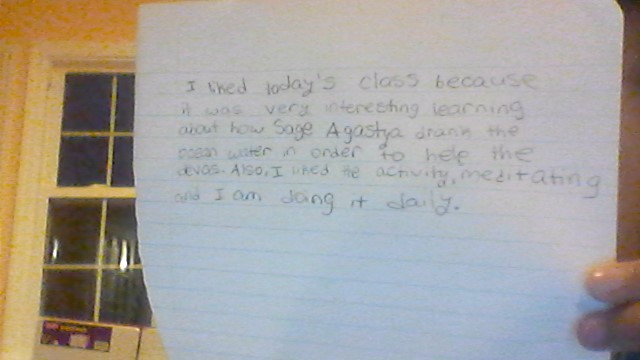 I liked today's class because
it was very interesting learning
about how Sage Agastya drank the
ocean water in order to help the
devas. Also, I liked the activity, meditating
and I am doing it daily.